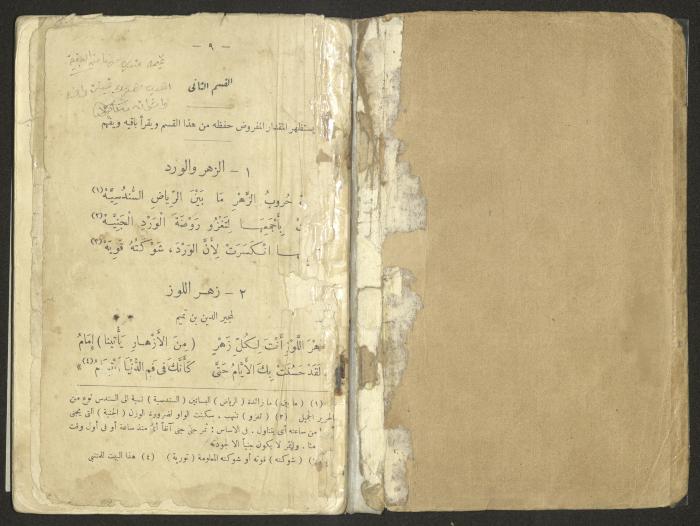 — ٩ —
القسم الثانى
يستظهر المقدار المفروض حفظه من هذا القسم ويقرأ باقيه ويفهم
١ - الزهر والورد
حُروبُ الزَّهْرِ مَا بَيْنَ الرِّياضِ السُّندُسِيَّهْ(١)
بِأَجْمَعِهَا لِتَغْزُو رَوْضَةَ الْوَرْدِ الْجَنِيَّهْ(٢)
انْكَسَرَتْ لِأَنَّ الوَرْدَ، شَوْكَتُهُ قَوِيَّهْ(٣)
٢ - زهر اللوز
لمجير الدين بن تميم
اللَّوْزِ أَنْتَ لِكُلِّ زَهْرٍ (مِنَ الأَزْهَارِ يَأْتِينَا) إِمَامُ
لَقَدْ حَسُنَتْ بِكَ الأَيَّامُ حَتَّى كَأَنَّكَ فِى فَمِ الدُّنْيَا (٤)»
(١) (ما بين) ما زائدة (الرياض) البساتين (السندسية) نسبة الى السندس نوع من
الحرير الجميل (٢) (تغزو) تنهب. سكنت الواو لضرورة الوزن (الجنية) التى يجنى
من ساعته أى يتناول. فى الاساس: ثمر جنى جنى آنفاً أى منذ ساعة أو فى أول وقت
لا يكون جنياً الا لجودته
(شوكته) قوته أو شوكته المعلومة (تورية) (٤) هذا البيت للمتنبى